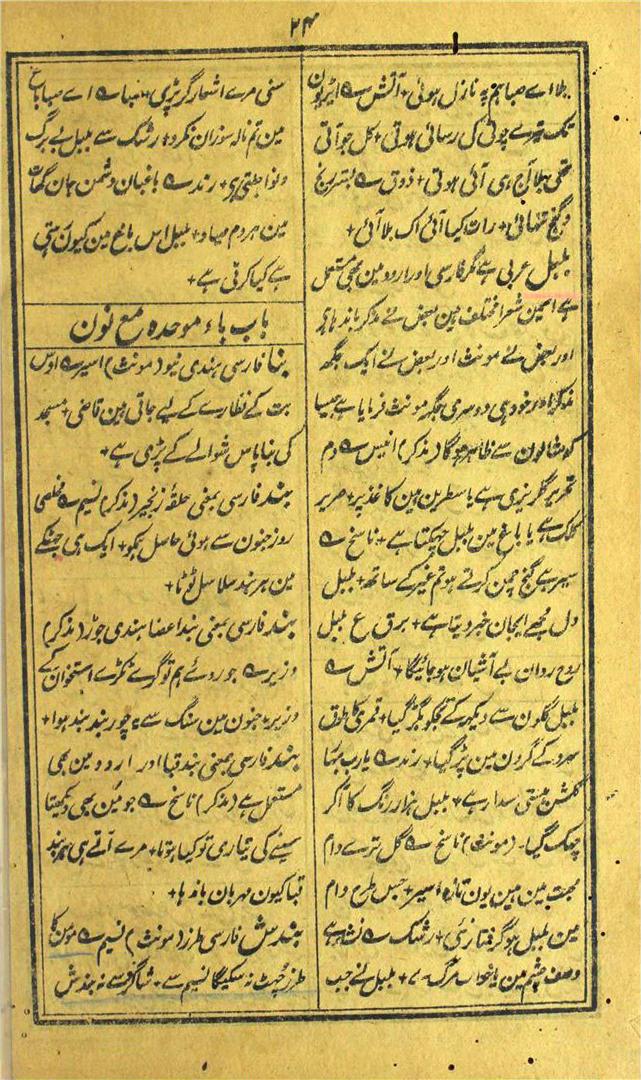 ۲۴
بلا اے صبا ہم پہ نازل ہوئی + آتش ؎
تک تیرے چوٹی کی رسائی ہوتی + کل جو آتی
تھی بلا آج ہی آئی ہوتی + ذوق ؎ بستر رنج
و کنج تنہائی + رات کیا آئی اک بلا آئی +
بلبل عربی ہے مگر فارسی اور اردو مین بھی مستعمل
ہے اسمین شعرا مختلف ہین بعض نے مذکر باندہا ہی
اور بعض نے مونث اور بعض نے ایک جگھ
مذکر اور خود ہی دوسری جگہ مونث فرمایا ہے جیسا
کہ مثالون سے ظاہر ہوگا (مذکر) انیس ؎ دم
تحریر گلریزی ہے یا سطرین ہین کاغذ پر + صریر
کلک ہے یا باغ مین بلبل چہکتا ہے + ناسخ ؎
سیر ہے گنج چمن کرتے ہو تم غیر کے ساتھ + بلبل
دل مجھے ایجان خبر دیتا ہے + برق ع بلبل
روح روان بے آشیان ہو جائیگا + آتش ؎
بلبل گلون سے دیکھ کے تجکو بگڑ گیا + قمری کا طوق
سرو کے گردن مین پڑ گیا + رند ؎ یارب بہا
گلشن ہستی سدا رہے + بلبل ہزار رنگ کا آکر
چہک گیا - (مونث) ناسخ ؎ گل ترے دام
محبت مین ہین یون تازہ اسیر + جس طرح دام
مین بلبل ہو گرفتار نئی + رشک ؎ نشہ ہے
وصف چشم مین یا خواب مرگ ہے + بلبل نے جب
سنی مرے اشعار گر پڑی + صبا ؎ اے صبا باغ
مین تم نالہ سوزان نکرو + رشک سے بلبل بے برگ
و نوا جلتی ہی + رند ؎ باغبان دشمن جان گھات
مین ہر دم صیاد + بلبل اس باغ مین کیون رہتی
ہے کیا کرتی ہے +
باب باء موحدہ مع نون
بنا فارسی ہندی نیو (مونث) اسیر ؎ اوس
بت کے نظارے کے لیے جاتی ہین قاضی + مسجد
کی بنا پاس شوالے کے پڑی ہے +
بند فارسی بمعنی حلقۂ زنجیر (مذکر) نسیم ؎ مخلصی
روز جنون سے ہوئی حاصل مجکو + ایک ہی جھٹکے
مین ہر بند سلاسل ٹوٹا +
بند فارسی بمعنی بند اعضا ہندی جوڑ (مذکر)
وزیر ؎ جو روئے ہم تو گرے ٹکڑے استخوان کے
وزیر + جنون مین سنگ سے چور بند بند ہوا +
بند فارسی بمعنی بند قبا اور اردو مین بھی
مستعمل ہے (مذکر) ناسخ ؎ جو مین بھی دیکھتا
سینے کی تیاری تو کیا ہوتا + مرے آتے ہی ہر بند
قبا کیون مہربان باندہا +
بندش فارسی طرز (مونث) نسیم ؎ مومن کا
طرز چھٹ نہ سکیگا نسیم سے + شاگرد سے نہ بندش